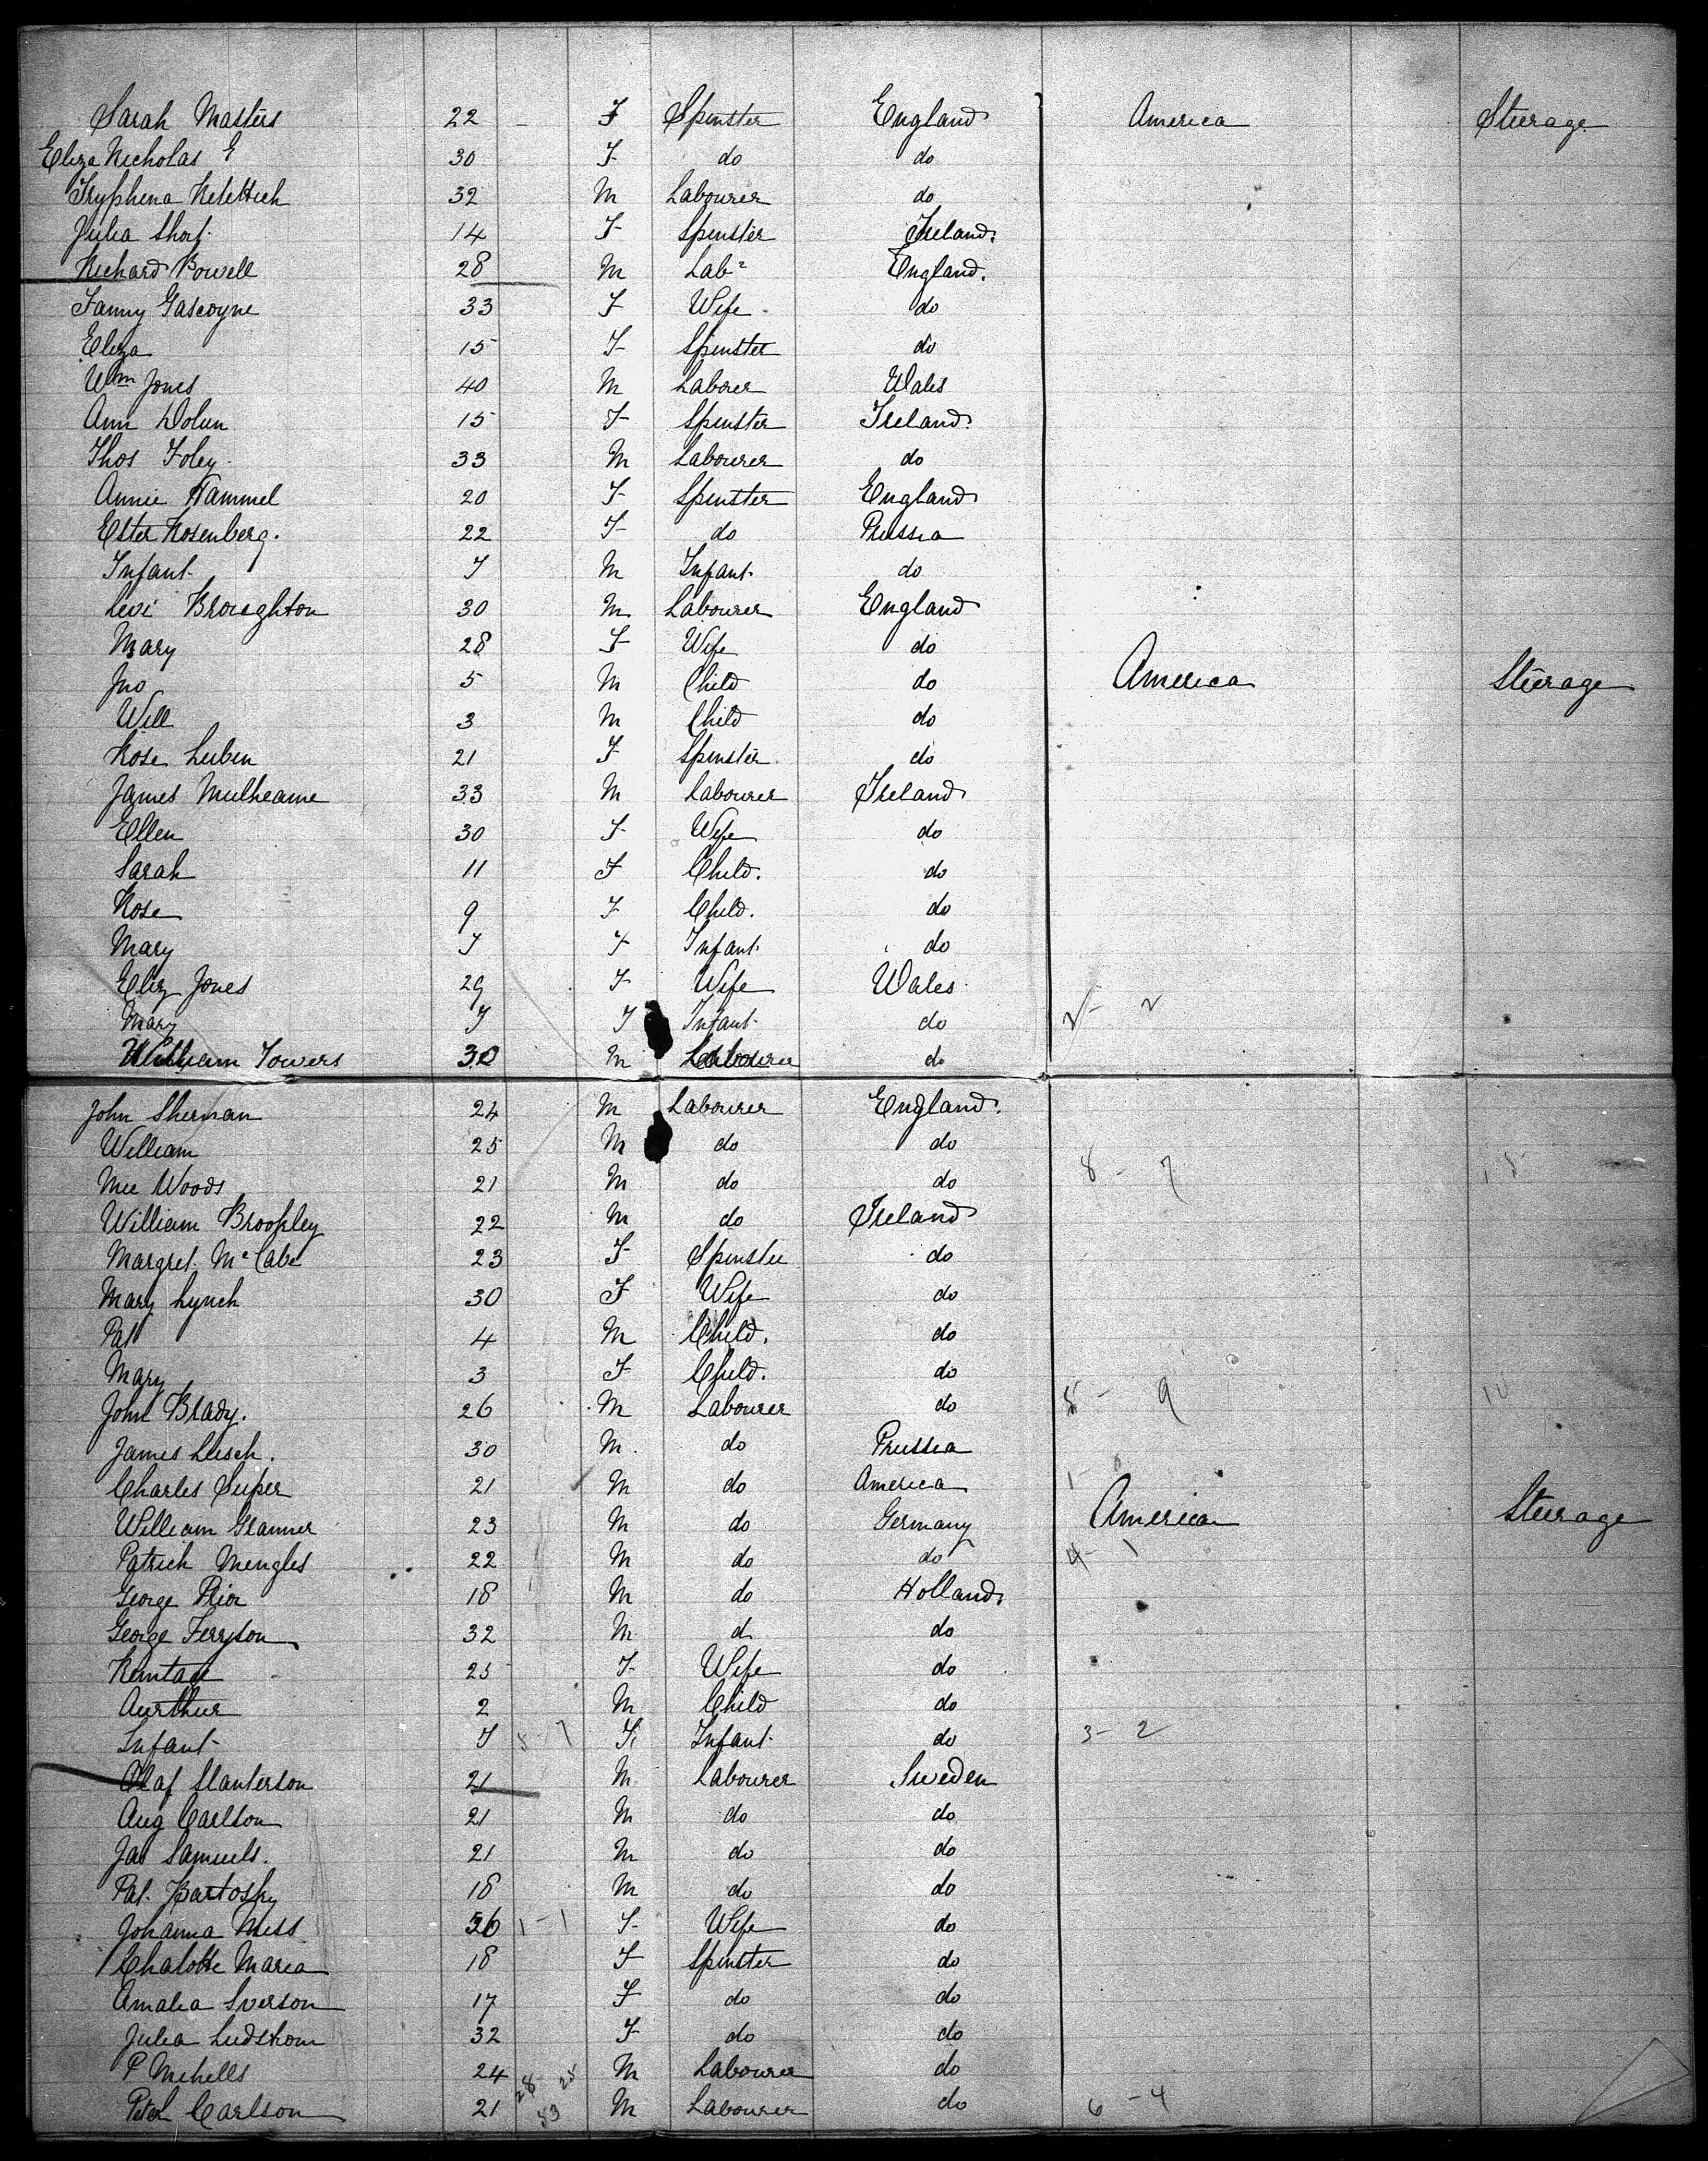 Sarah Masters 22 - F Spinster England America Steerage
Eliza Nicholas E 30 F do do
Tryphena 32 M Labourer do
Julia Short 14 F Spinster Ireland
Richard Powell 28 M Labr England.
Fanny Gascoyne 33 F Wife do
Eliza 15 F Spinster do
Wm Jones 40 M Laborer Wales
Ann Dolun 15 F Spinster Ireland
Thos Foley 33 M Labourer do
Annie Hammel 20 F Spinster England
Ester Rosenberg. 22 F do Prussia
Infant I M Infant do
Levi Broughton 30 M Labourer England
Mary 28 F Wife do
Jno 5 M Child do America Steerage
Will 3 M Child do
Rose Luben 21 F Spinster do
James Mulhearne 33 M Labourer Ireland
Ellen 30 F Wife do
Sarah 11 F Child. do
Rose 9 F Child. do
Mary I F Infant do
Eliz Jones 29 F Wife Wales
Mary I F Infant do 2 - 2
William Towers 30 M Labourer do
John Sherman 24 M Labourer England.
William 25 M do do
Woods 21 M do do 8 - 7
William Brookley 22 M do Ireland
Margret McCabe 23 F Spinster do
Mary Lynch 30 F Wife do
Pat 4 M Child. do
Mary 3 F Child. do
John Brady. 26 M Labourer do 8 - 9 10
James Lusch. 30 M. do Prussia
Charles Super 21 M do America
William Granner 23 M do Germany America Steerage
Patrick Mengles 22 M do do 4 - 1
George Prior 18 M do Holland
George Ferryson 32 M d do
25 F Wife do
Aurthur 2 M Child do
Infant I 8 - 7 F Infant do 3 - 2
Olaf Slanterson 21 M Labourer Sweden
Aug Carlson 21 M do do
Jas Samuels. 21 M do do
Pat. Bartosky 18 M do do
Johanna Ness 1 - 1 F Wife do
Chalotte Maria 18 F Spinster do
Amalia Sverson 17 F do do
Julia Ludstrom 32 F do do
P Mehells 24 28 25 M Labourer do
Peter Carlson 21 53 M Labourer do 6 - 4